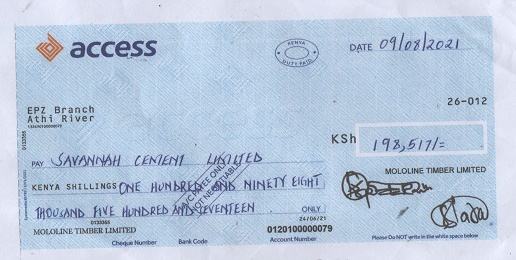 access
KENYA
DUTY PAID
DATE 09/08/2021
EPZ Branch
Athi River
26-012
KSh 198,517/=
PAY SAVANNAH CEMENT LIMITED
A/C PAYEE ONLY
NOT NEGOTIABLE
KENYA SHILLINGS ONE HUNDRED AND NINETY EIGHT
MOLOLINE TIMBER LIMITED
THOUSAND FIVE HUNDRED AND SEVENTEEN ONLY
0133355
24/06/21
MOLOLINE TIMBER LIMITED
0120100000079
Cheque Number Bank Code Account Number
Please Do NOT write in the white space below